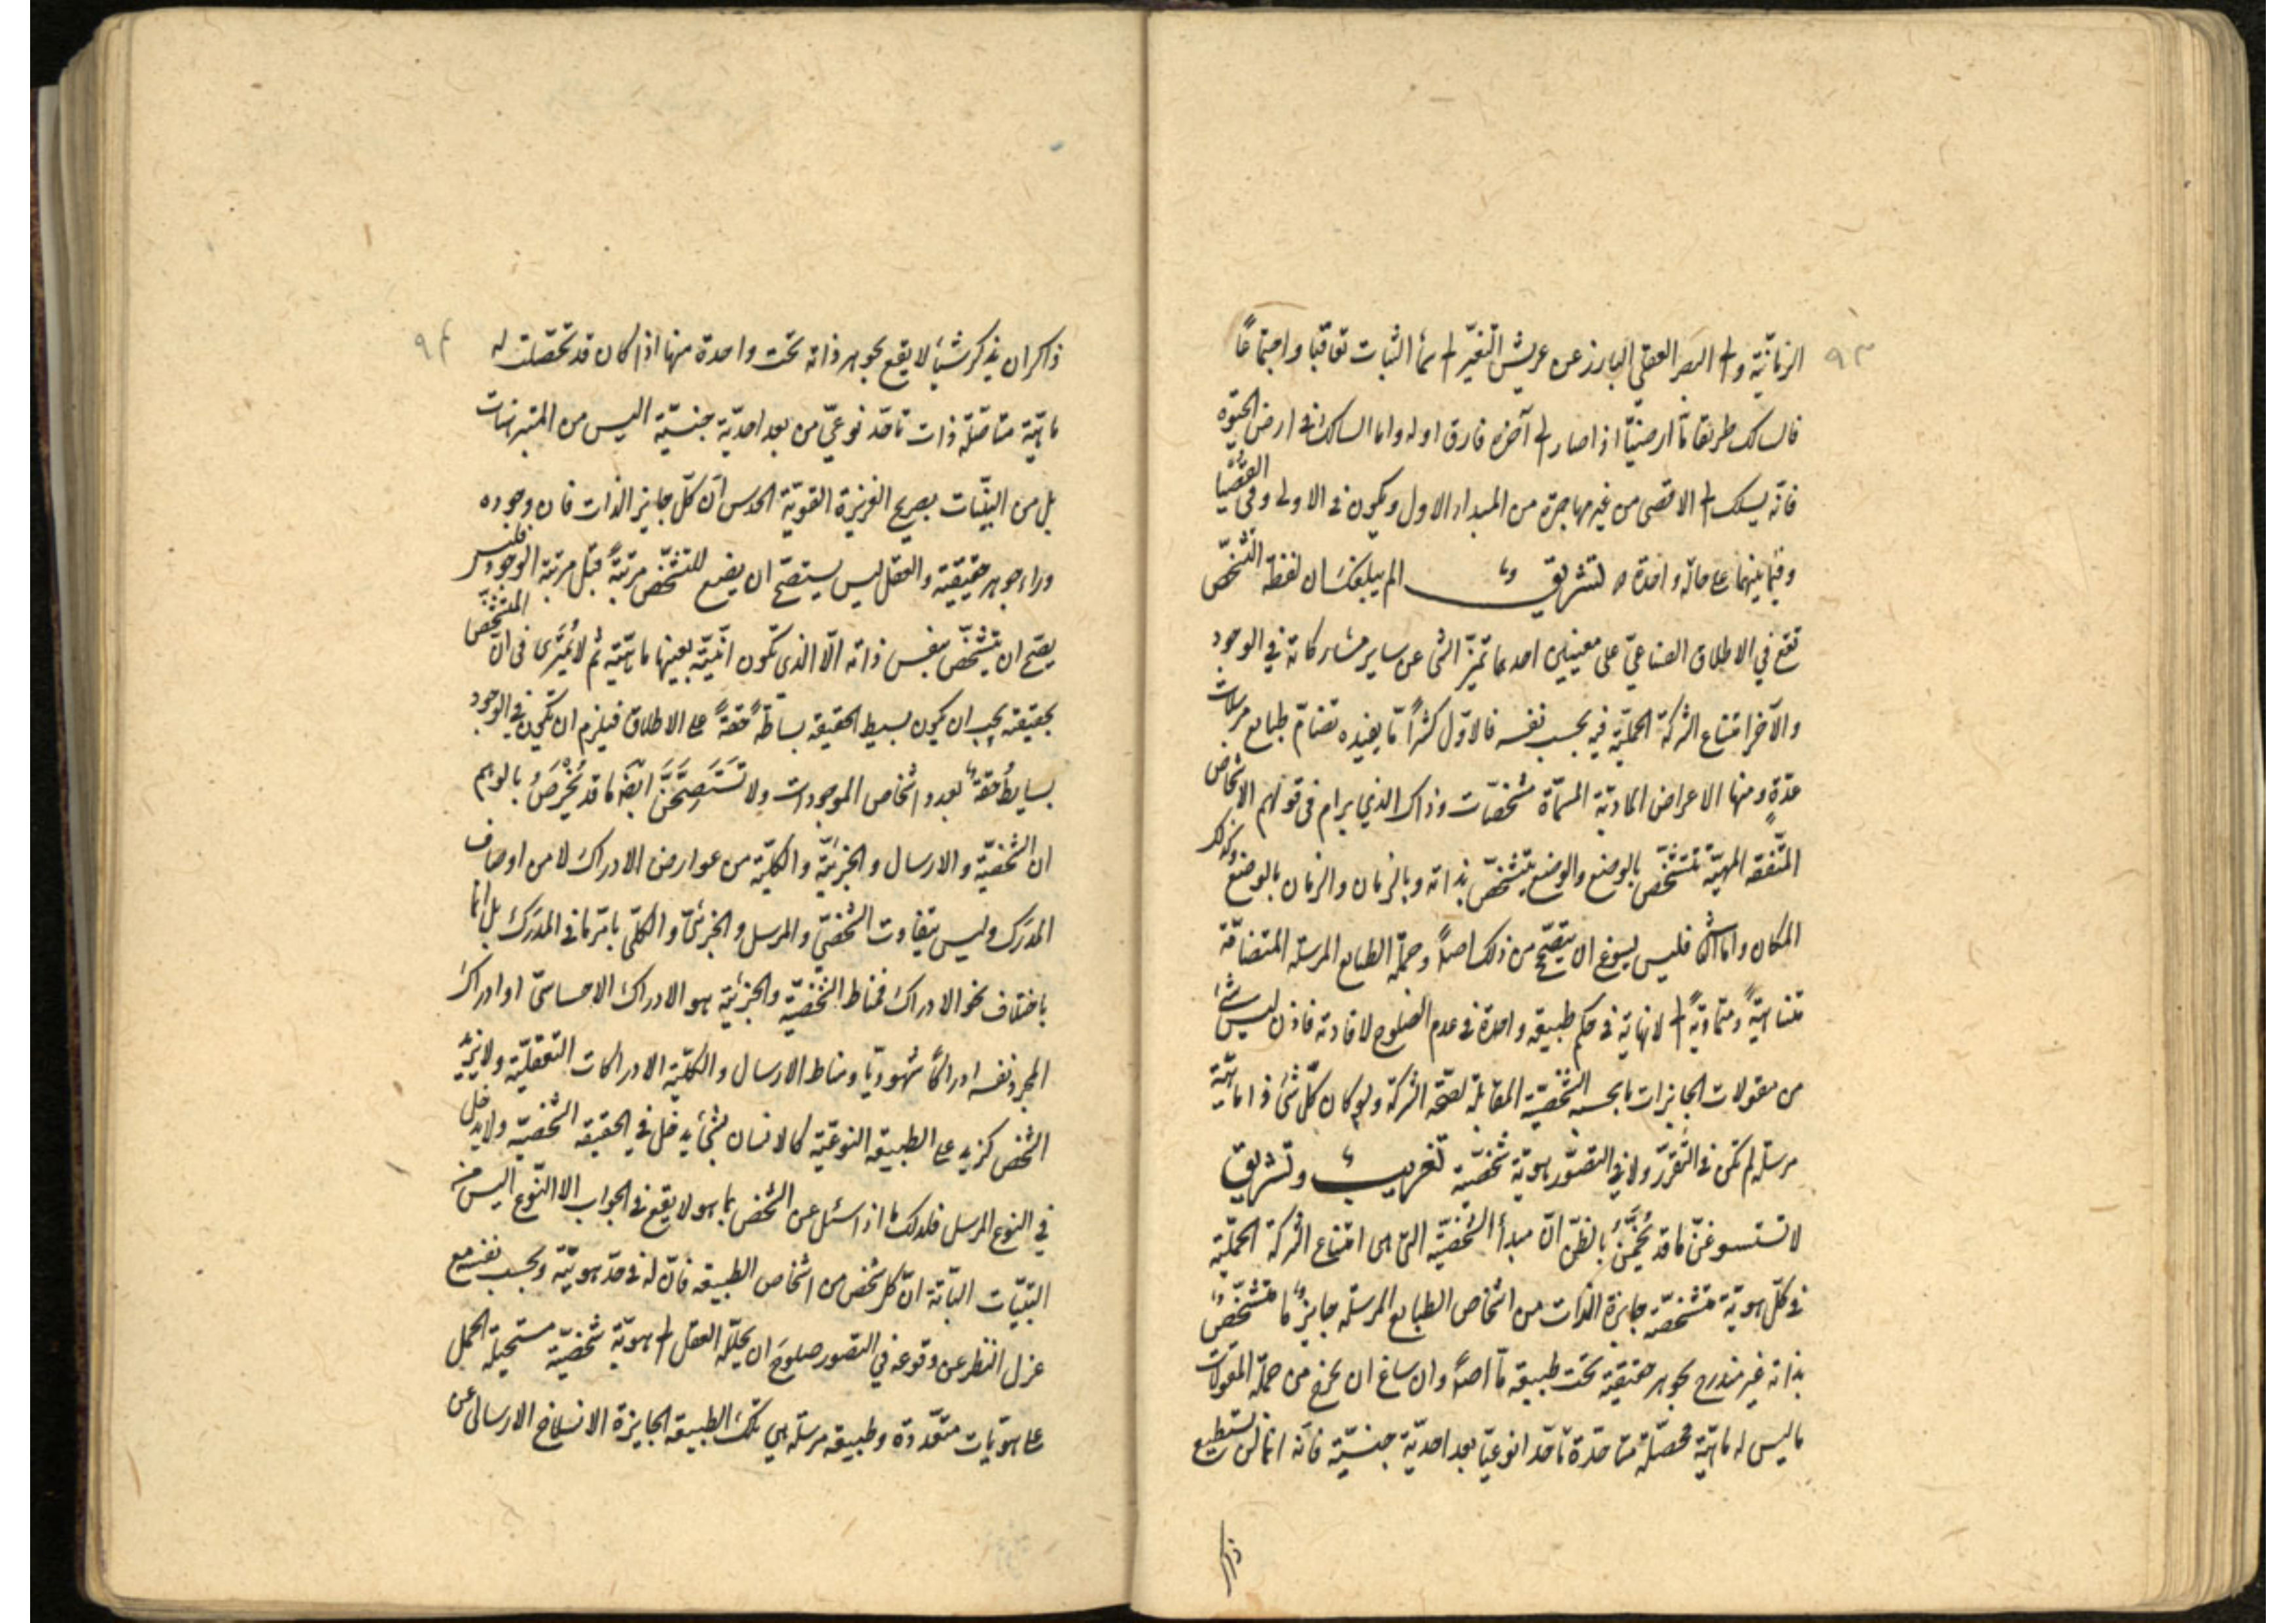 ٩٣
الزمانيّة والى البصر العقلي البارز عن عريش التغيّر الى سمأ الثبات تعاقبا واجتماعاً
فالسالك طريقا ما ارضيّا اذا صار الى آخره فارق اوله واما السالك فى ارض الحيوة
فانّه يسلك الى الاقصى من غير مهاجرة من المبداء الاول ويكون فى الاولى وفى القصيا
وفيما بينهما على حالة واحدة تشريق الم يبلغك ان لفظة التشخّص
تقع في الاطلاق الصناعيّ على معنيين احدهما تميّز الشئ عن ساير مشاركاته في الوجود
والآخر امتناع الشركة الحمليّة فيه بحسب نفسه فالاوّل كثيراً مّا يفيده تضامّ طبايع مرسلات
عدّةٍ ومنها الاعراض المادّية المسمّاة مشخّصات وذاك الذي يرام فى قولهم الاشخاص
المتّفقة المهيّة تتشخّص بالوضع والوضع يتشخّص بذاته وبالزمان والزمان بالوضع وكذلك
المكان واما الثانى فليس يسوغ ان يتصحّح من ذلك اصلاً وجملة الطبايع المرسلة المتضامّة
متناهيةً ومتمادّيةً الى لا نهاية فى حكم طبيعة واحدة فى عدم الصلوح لافادته فاذن ليس شئ
من مقولات الجايزات ما بحسبه الشخصيّة المقابلة لصحّة الشركة ولو كان كلّ شئ ذا ماهيّة
مرسلة لم تكن فى التقرّر ولا في التصوّر هويّة شخصيّة تغريب وتشريق
لا تستسوغنّ ما قد يُخمَّنُ بالظنّ انّ مبدأ الشخصيّة التى هى امتناع الشركة الحمليّة
فى كلّ هويّة متشخّصة جايزة الذات من اشخاص الطبايع المرسلة جايزٌ ما متشخّصٌ
بذاته غير مندرج بجوهر حقيقته تحت طبيعة مّا اصلاً وان ساغ ان يخرج من جملة المقولات
ما ليس له ماهيّة محصّلة متاحّدة تاحّدا نوعيّا بعد احديّة جنسيّة فانّه انما لن يستطيع
ذاكر
٩٤
ذاكر ان يذكر شيئا لا يقع بجوهر ذاته تحت واحدة منها اذا كان قد تحصّلت له
ماهيّة متاصّلة ذات تاحّد نوعيّ من بعد احديّة جنسيّة اليس من المتبرهنات
بل من البيّنات بصريح الغريزة القويّة الحدس انّ كلّ جايز الذات فان وجوده
وراء جوهر حقيقته والعقل ليس يستصحّ ان يضع للتشخّص مرتبةً قبل مرتبة الوجود فليس
يصحّ ان يتشخّص بنفس ذاته الّا الذى تكون انّيّته بعينها ماهيّته ثم لا يُمترى فى انّ المتشخّص
بحقيقته يجب ان يكون بسيط الحقيقة بساطةً حقّةً على الاطلاق فيلزم ان تكون فى الوجود
بسايطُ حقّةٌ بعدد اشخاص الموجودات ولا تَسْتَصِحَّنَّ ايضَاً ما قد يُخْرَصُ بالوهم
ان الشخصيّة والارسال والجزئيّة والكليّة من عوارض الادراك لا من اوصاف
المدرَك وليس يتفاوت الشخصيّ والمرسل والجزئىّ والكلّى بامرما فى المدرَك بل انما
باختلاف نحو الادراك فمناط الشخصيّة والجزئية هو الادراك الاحساسىّ او ادراك
المجرد نفسه ادراكًا شهوديّا ومناط الارسال والكليّة الادراكات التعقليّة ولا يزيد
الشخص كزيد على الطبيعة النوعيّة كالانسان بشئ يدخل في الحقيقة الشخصيّة ولا يدخل
في النوع المرسل فلذلك ما اذا سئل عن الشخص بما هو لا يقع فى الجواب الا النّوع اليس من
البيّنات الباتّة انّ كل شخص من اشخاص الطبيعة فانّ له فى حدّ هويّته وبحسب نفسه مع
عزل النظر عن وقوعه في التصور صلوحَ ان يحلّله العقل الى هويّة شخصيّة مستحيلة الحمل
على هويّات متعّددة وطبيعة مرسلة هي تلك الطبيعة الجايزة الانسلاخ الارسالى عن